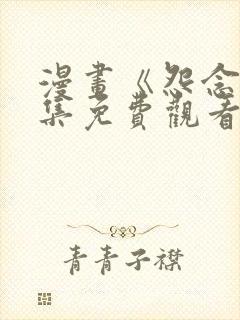 漫畫《怨念
集免費觀看
青青子襟